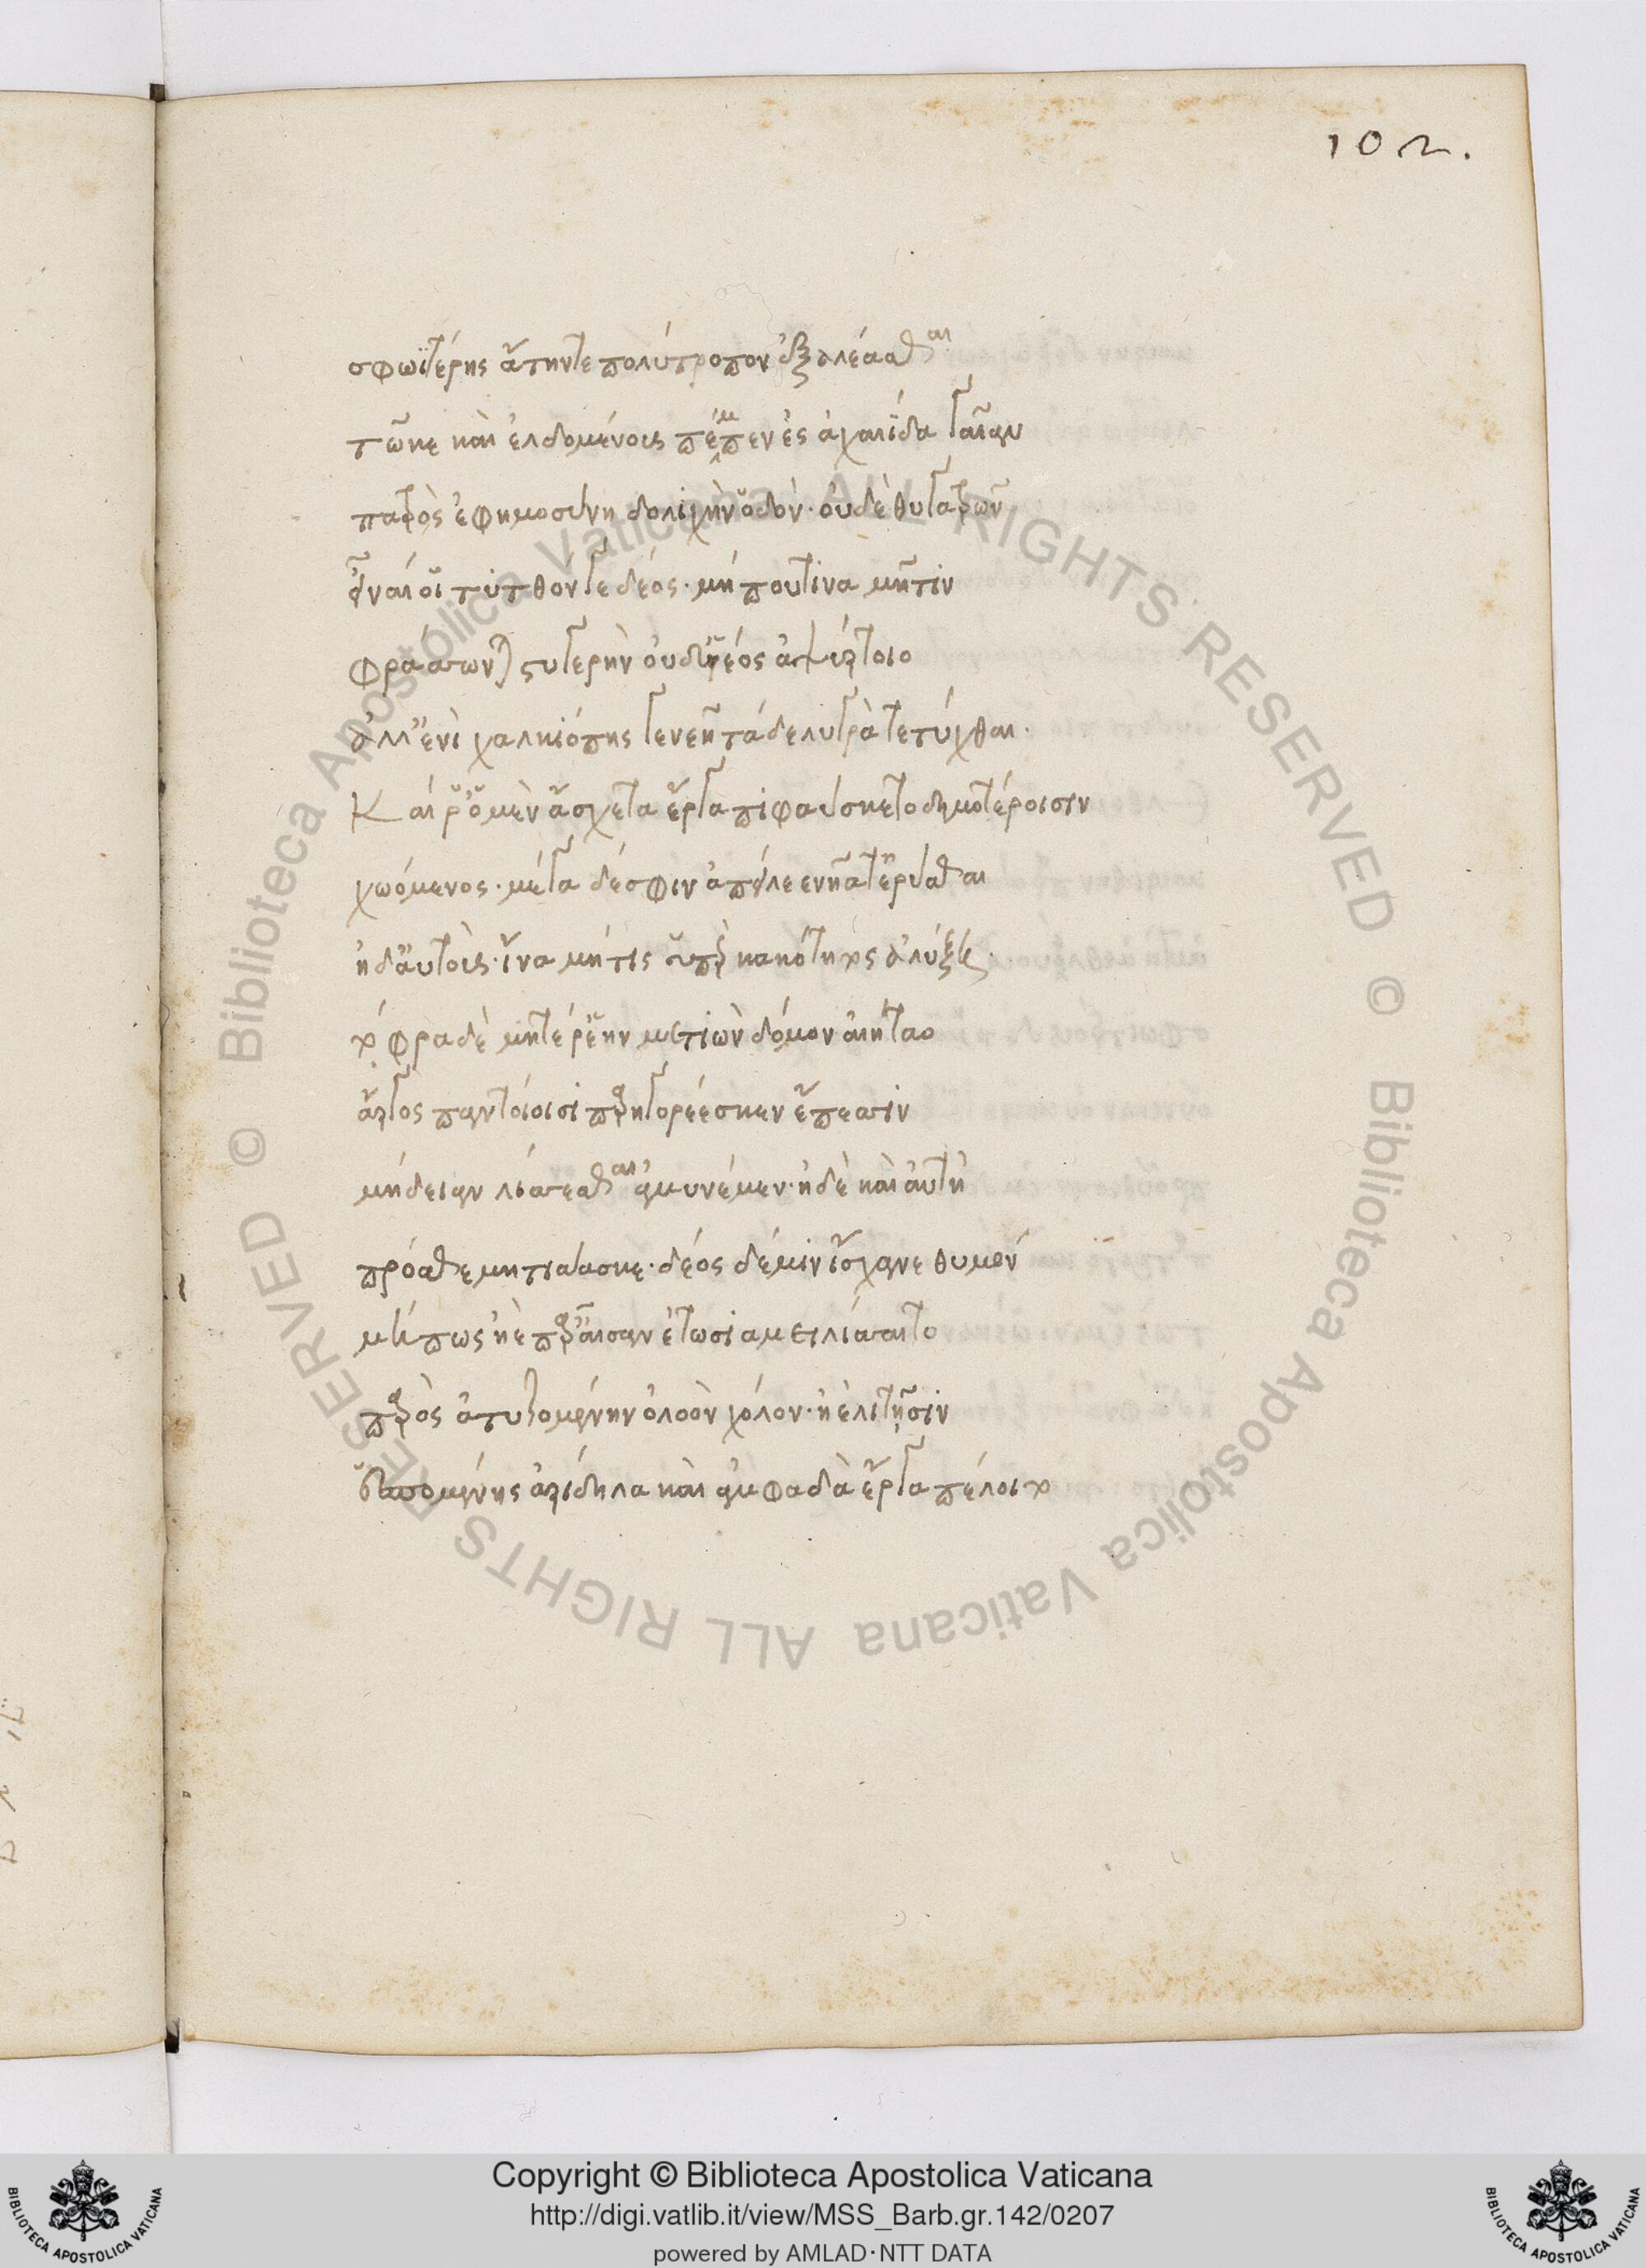 σφωϊτέρης ἄτην τε πολύτροπον ἐξαλέασθαι
τῶκε καὶ ἐλδομένους πέμπεν ἐς ἀχαιΐδα γαῖαν
πατρὸς ἐφημοσύνη δολιχὴν ὁδόν· οὐδὲ θυγατρῶν
εἶναί οἱ τυτθόν γε δέος· μή που τινα μῆτιν
φράσσωνται στυγερὴν οὐδ' υἱέος ἀψύρτοιο
ἀλλ' ἐνὶ χαλκιόπης γενεῆ τάδε λυγρὰ τετύχθαι·
Καί ῥ' ὁ μὲν ἄσχετα ἔργα πιφαύσκετο δημοτέροισιν
χωόμενος· μέγα δέ σφιν ἀπείλεε νῆα τ' ἐρύσθαι
ἠδ' αὐτούς· ἵνα μή τις ὑπὲρ κακότητος ἀλύξει·
τόφρα δὲ μητέρ' ἑὴν μετιὼν δόμον αἰήταο
ἄργος παντοίοισι παρηγορέεσκεν ἔπεσσιν
μήδειαν λίσσεσθαι ἀμυνέμεν· ἡ δὲ καὶ αὐτὴ
πρόσθε μητιάασκε· δέος δέ μιν ἴσχανε θυμόν
μή πως ἠὲ παρ' αἶσαν ἐτώσια μειλίσσαιτο
πατρὸς ἀτυζομένην ὀλοὸν χόλον· ἠὲ λιτῆσιν
ἑσπομένης ἀρίδηλα καὶ ἀμφαδὰ ἔργα πέλοιτο
102.
© Biblioteca Apostolica Vaticana ALL RIGHTS RESERVED © Biblioteca Apostolica Vaticana ALL RIGHTS RESERVED
BIBLIOTECA APOSTOLICA VATICANA
Copyright © Biblioteca Apostolica Vaticana
http://digi.vatlib.it/view/MSS_Barb.gr.142/0207
powered by AMLAD·NTT DATA
BIBLIOTECA APOSTOLICA VATICANA